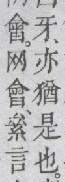 牙、亦猶是也。
會。网會、絫言